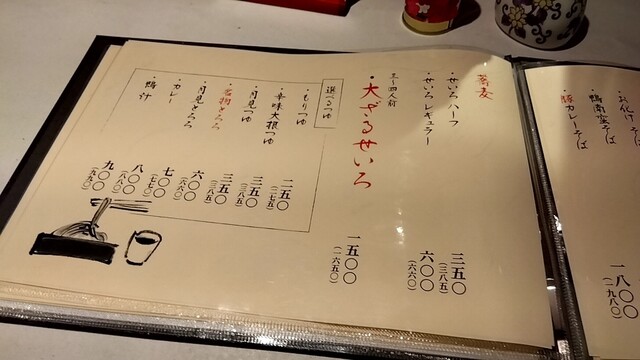 お化けそば
鴨南蛮そば
豚カレーそば
一八〇〇
（一九八〇）
蕎麦
・せいろ ハーフ
三五〇
（三八五）
・せいろ レギュラー
六〇〇
（六六〇）
三〜四人前
・大ざるせいろ
一五〇〇
（一六五〇）
選べるつゆ
・もりつゆ
二五〇
（二七五）
・辛味大根つゆ
三五〇
（三八五）
・月見つゆ
三五〇
（三八五）
・名物とろろ
六〇〇
（六六〇）
・月見とろろ
七〇〇
（七七〇）
・カレー
八〇〇
（八八〇）
・鴨汁
九〇〇
（九九〇）